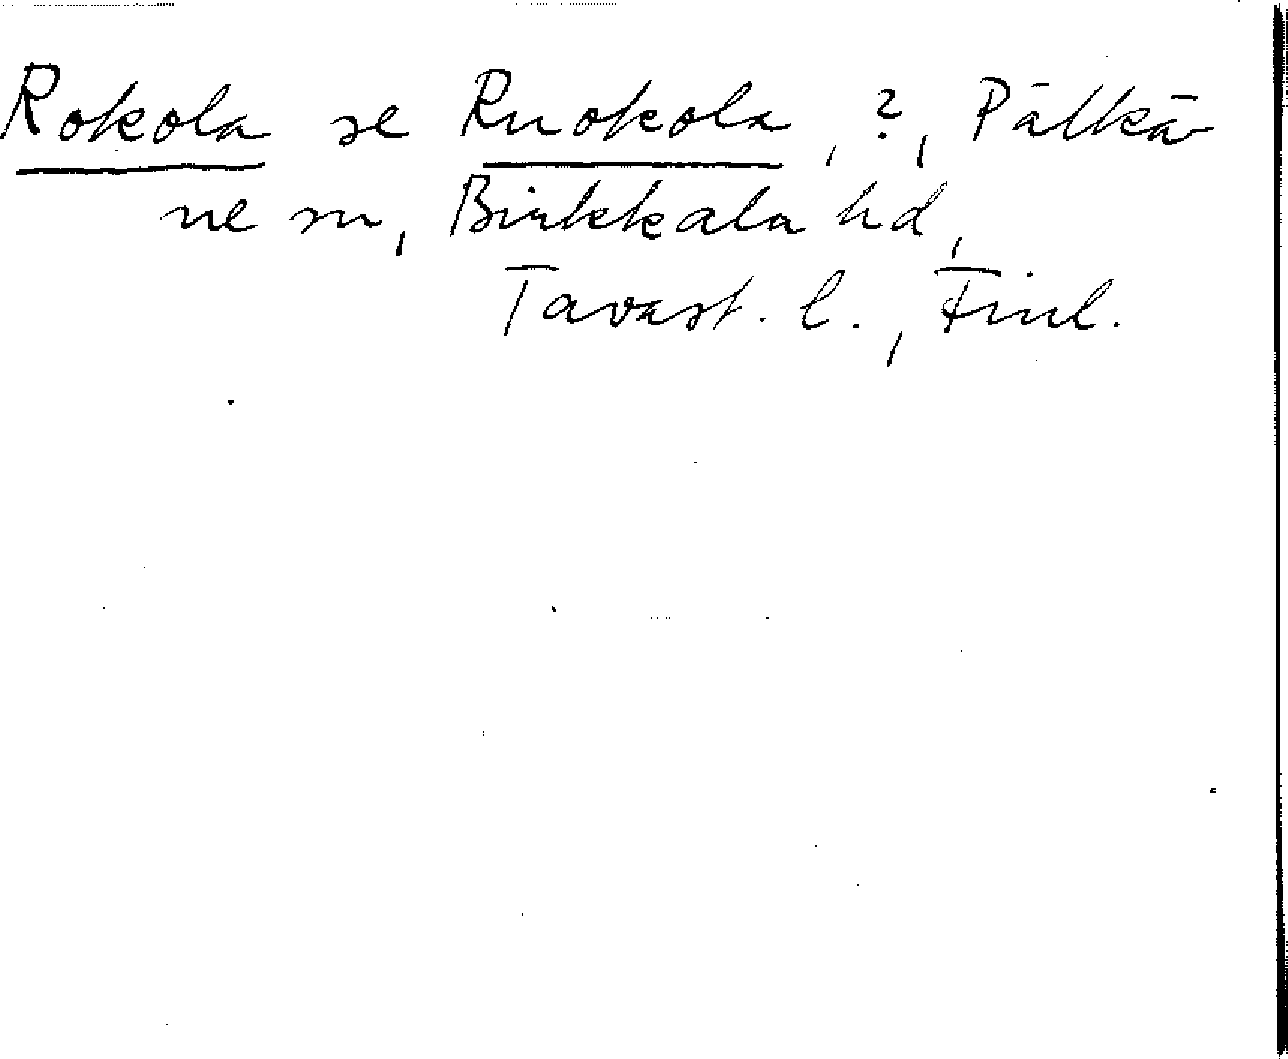 Rokola se Ruokola, ?, Pälkä-
ne sn, Birkkala hd,
Tavast. l., Finl.